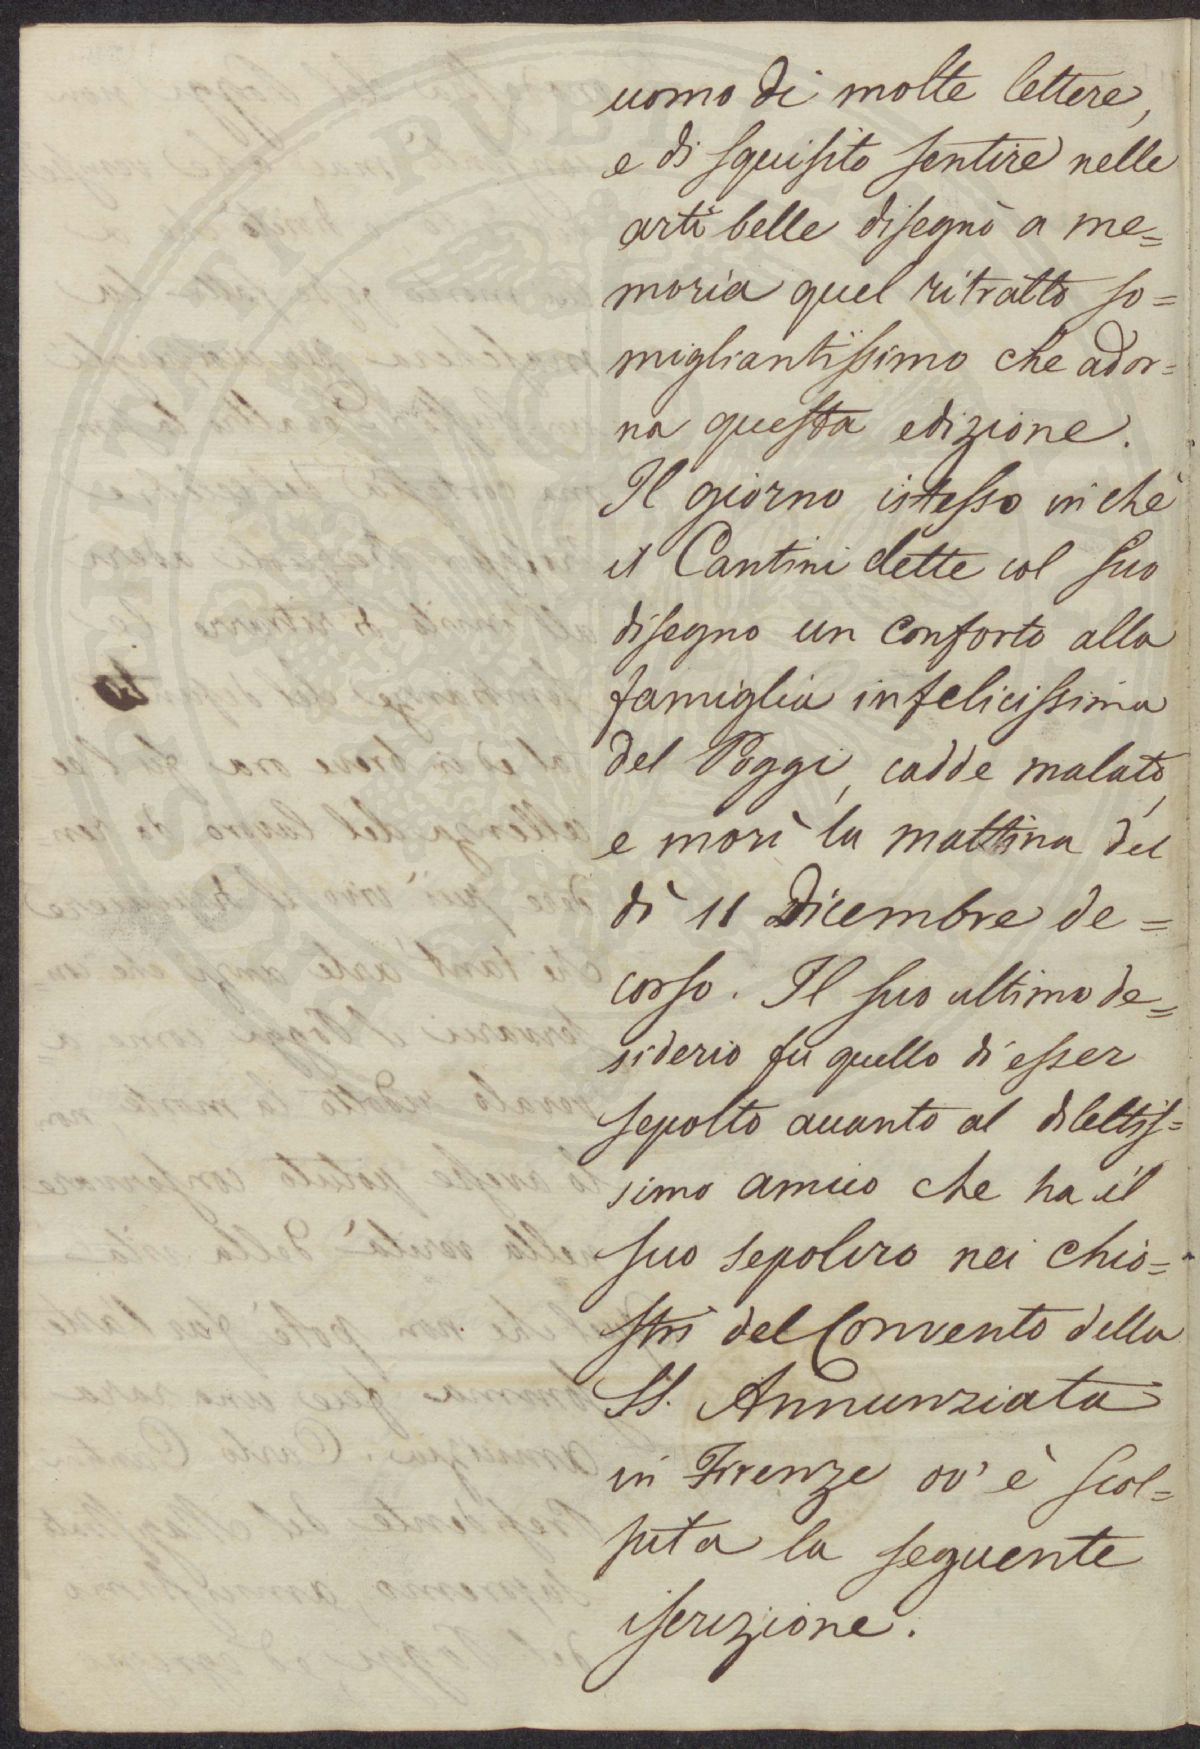 uomo di molte lettere,
e di squisito sentire nelle
arti belle disegnò a me=
moria quel ritratto so=
migliantissimo che ador=
na questa edizione.
Il giorno istesso in che
il Cantini dette col suo
disegno un conforto alla
famiglia infelicissima
del Poggi, cadde malato,
e morì la mattina del
dì 11 Dicembre de=
corso. Il suo ultimo de=
siderio fu quello di esser
sepolto avanto al dilettis=
simo amico che ha il
suo sepolcro nei chio=
stri del Convento della
SS. Annunziata
in Firenze ov' è scol=
pita la seguente
iscrizione.